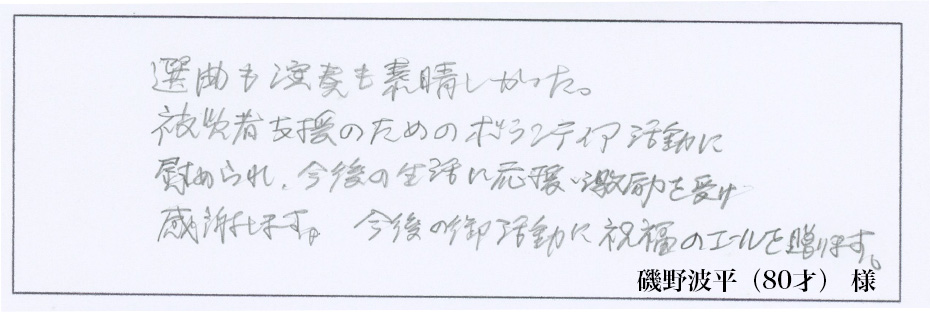 選曲も演奏も素晴しかった。
被災者支援のためのボランティア活動に
慰められ、今後の生活に応援、激励を受け
感謝します。今後の御活動に祝福のエールを贈ります。
磯野波平（80才） 様